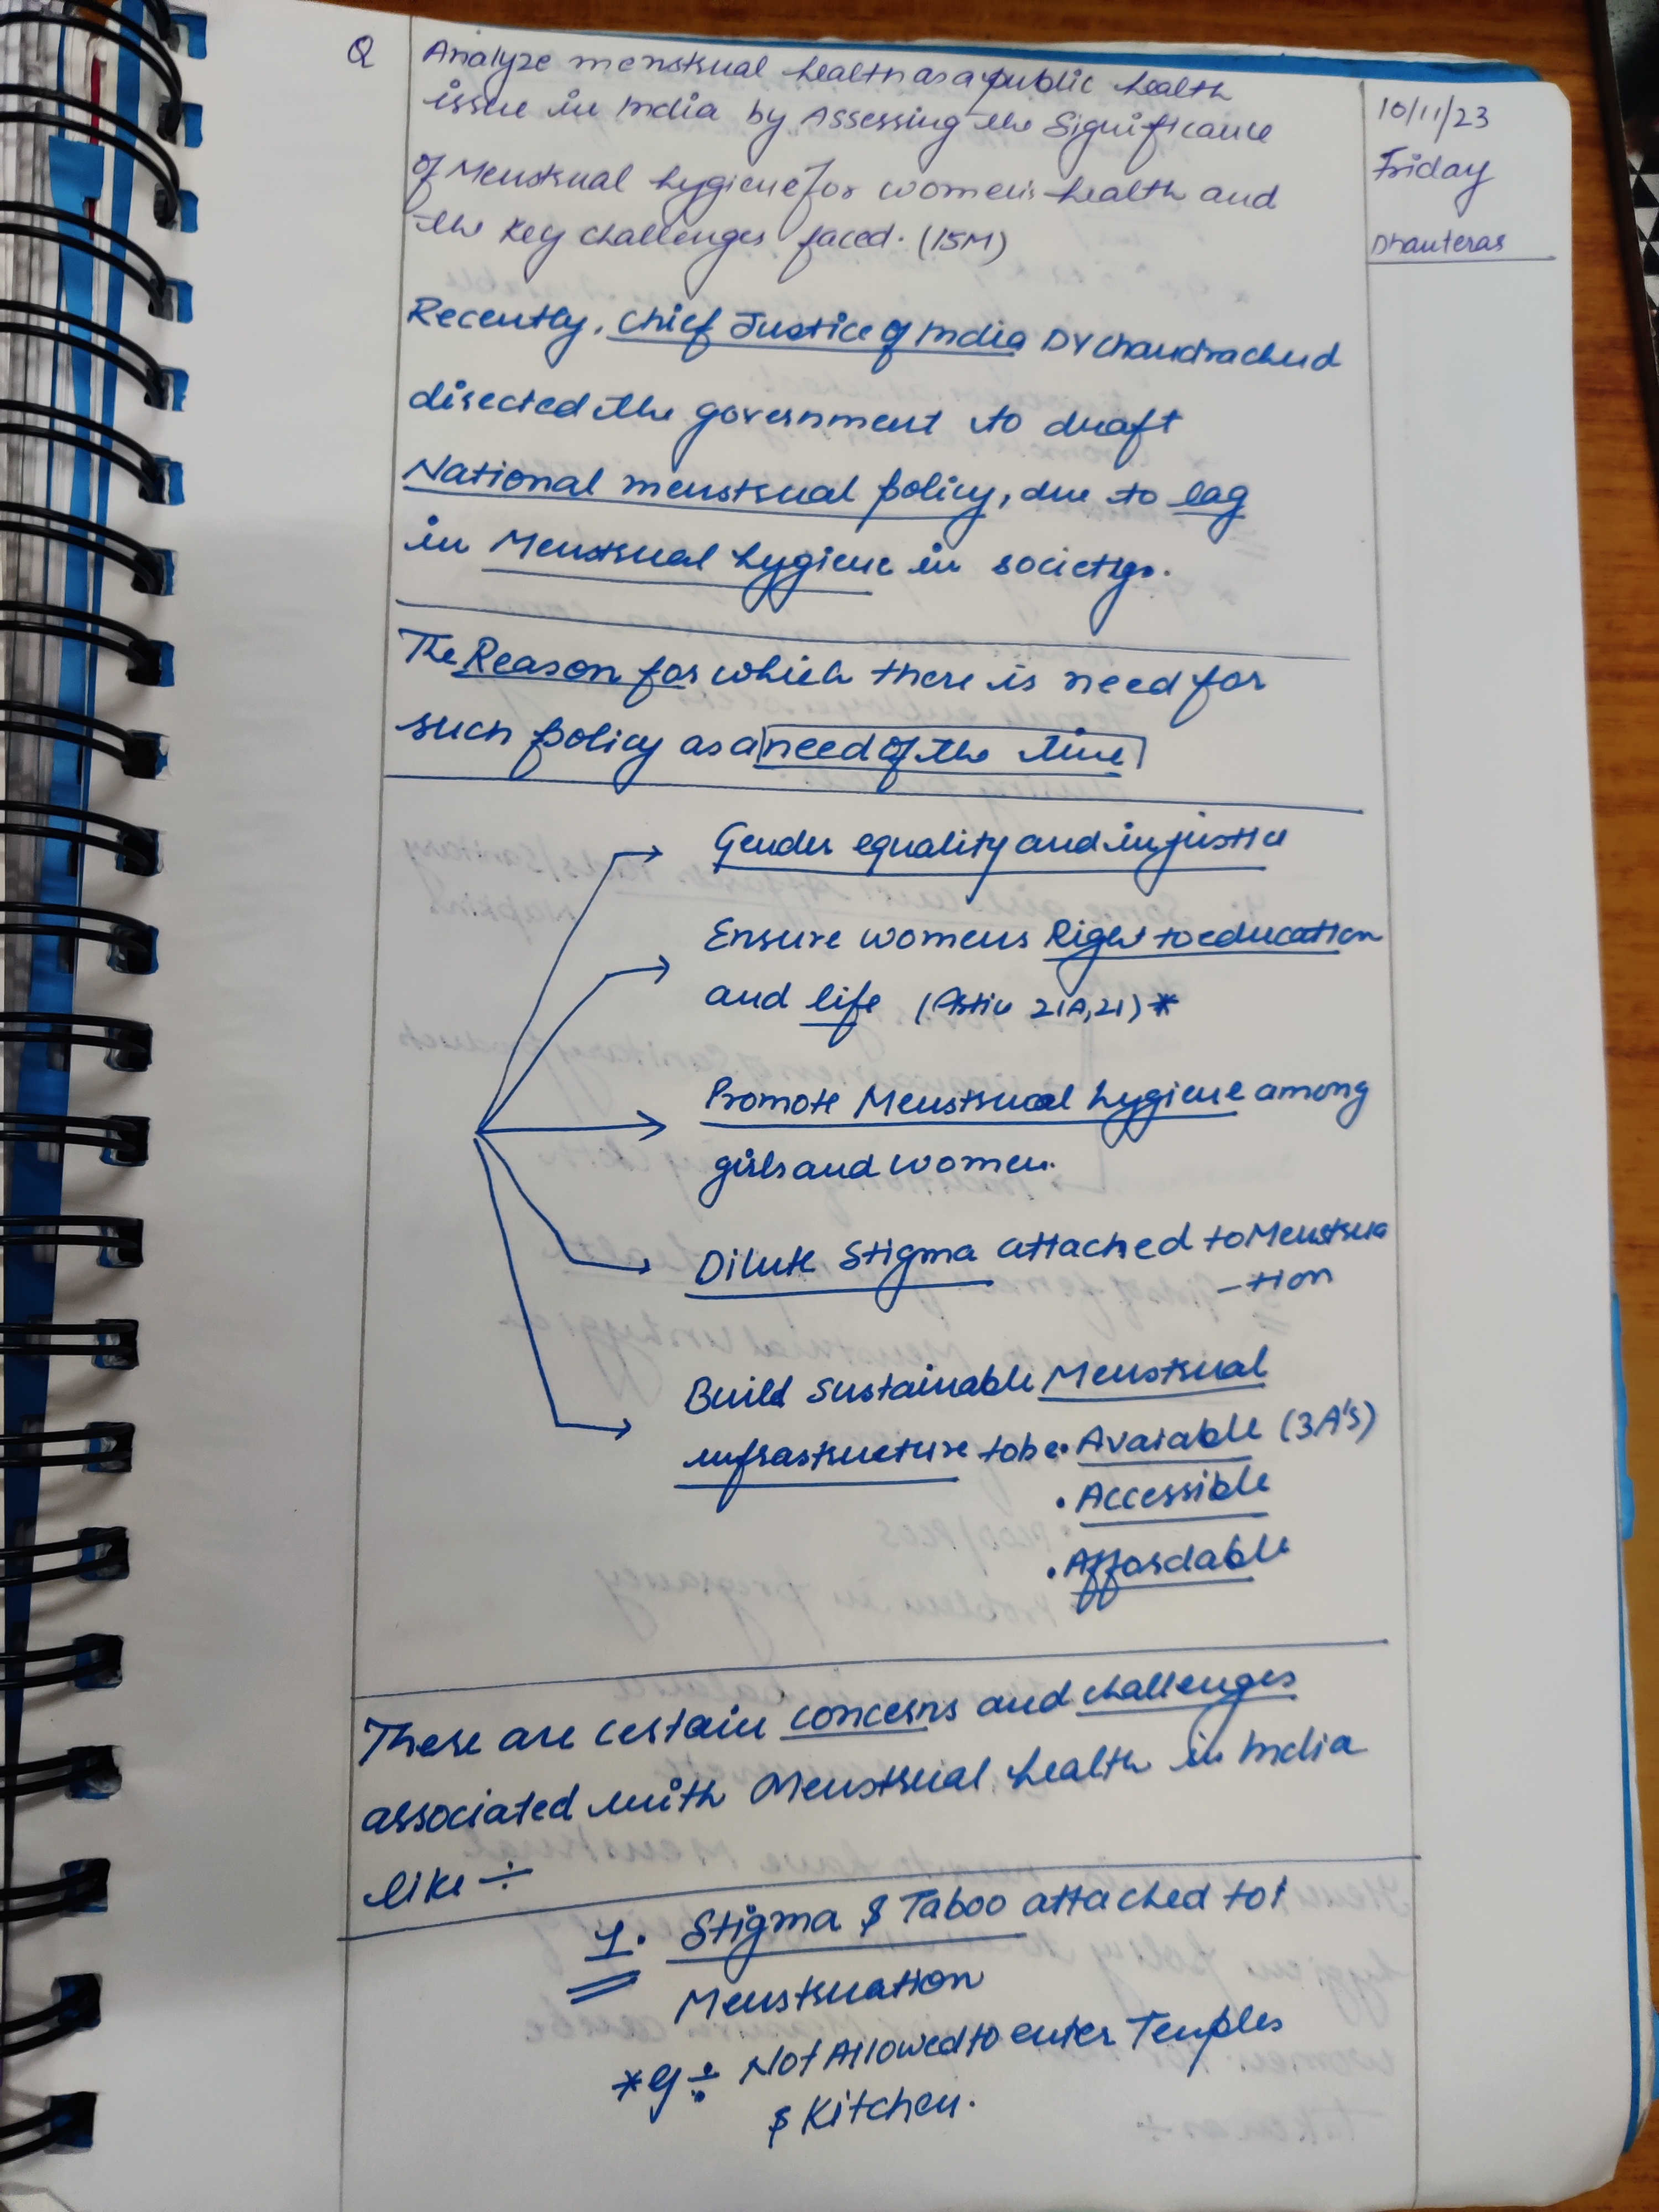 Q Analyze menstrual health as a public health
issue in India by Assessing the Significance
of Menstrual hygiene for women's health and
the Key challenges faced. (15M)
10/11/23
Friday
Dhanteras
Recently, Chief Justice of India DY Chandrachud
directed the government to draft
National menstrual policy, due to lag
in Menstrual hygiene in society.
The Reason for which there is need for
such policy as a need of the time
Gender equality and injustice
Ensure womens Right to education
and life (Artic 21A, 21) *
Promote Menstrual hygiene among
girls and women.
Dilute Stigma attached to Menstrua
-tion
Build Sustainable Menstrual
infrastructure to be • Avaiable (3A's)
• Accessible
• Affordable
There are certain concerns and challenges
associated with Menstrual health in India
like ÷
1. Stigma & Taboo attached to
Menstruation
*eg ÷ Not Allowed to enter Temples
& Kitchen.